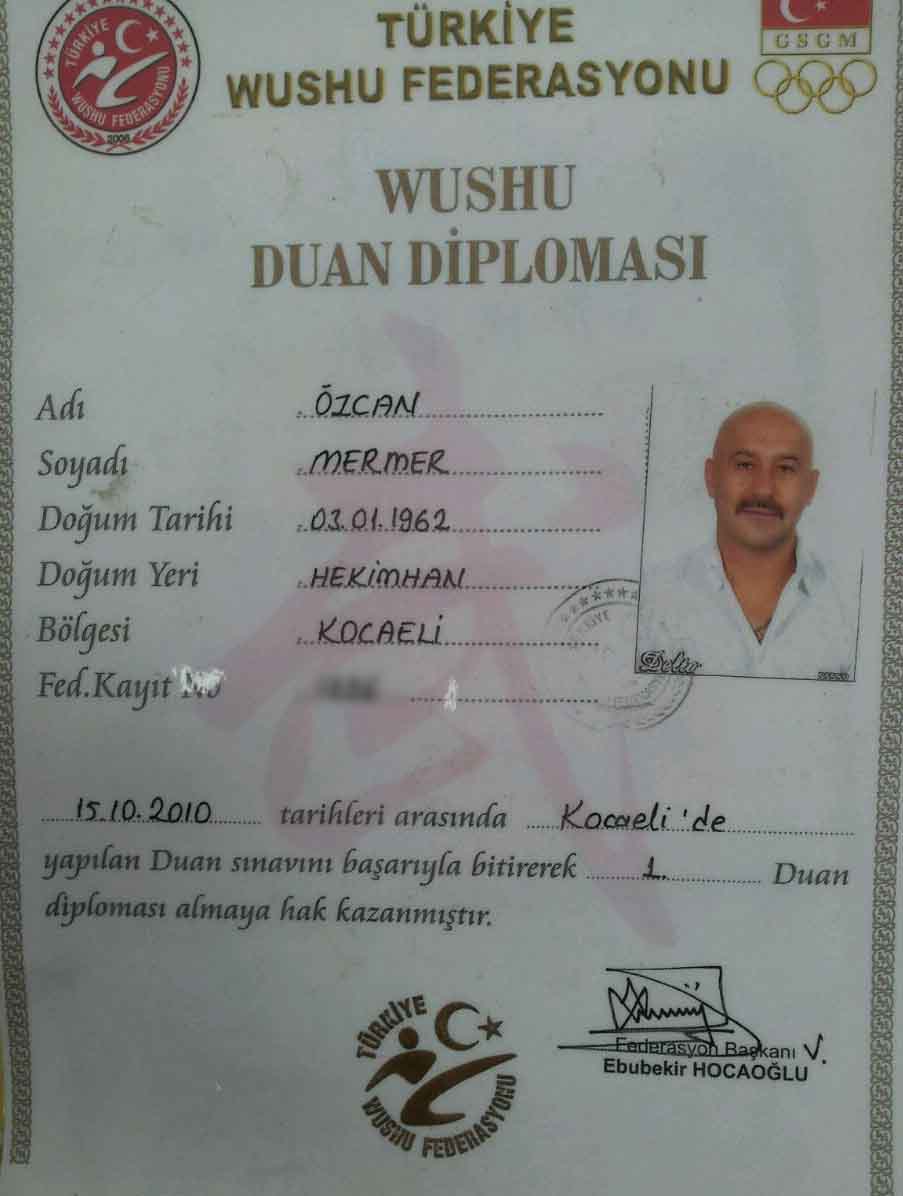 TÜRKİYE
WUSHU FEDERASYONU
TÜRKİYE WUSHU FEDERASYONU
2006
GSGM
WUSHU
DUAN DİPLOMASI
Adı : ÖZCAN
Soyadı : MERMER
Doğum Tarihi : 03.01.1962
Doğum Yeri : HEKİMHAN
Bölgesi : KOCAELİ
Fed.Kayıt No
Delta
TÜRKİYE
15.10.2010 tarihleri arasında Kocaeli'de
yapılan Duan sınavını başarıyla bitirerek 1. Duan
diploması almaya hak kazanmıştır.
TÜRKİYE
WUSHU FEDERASYONU
Federasyon Başkanı V.
Ebubekir HOCAOĞLU